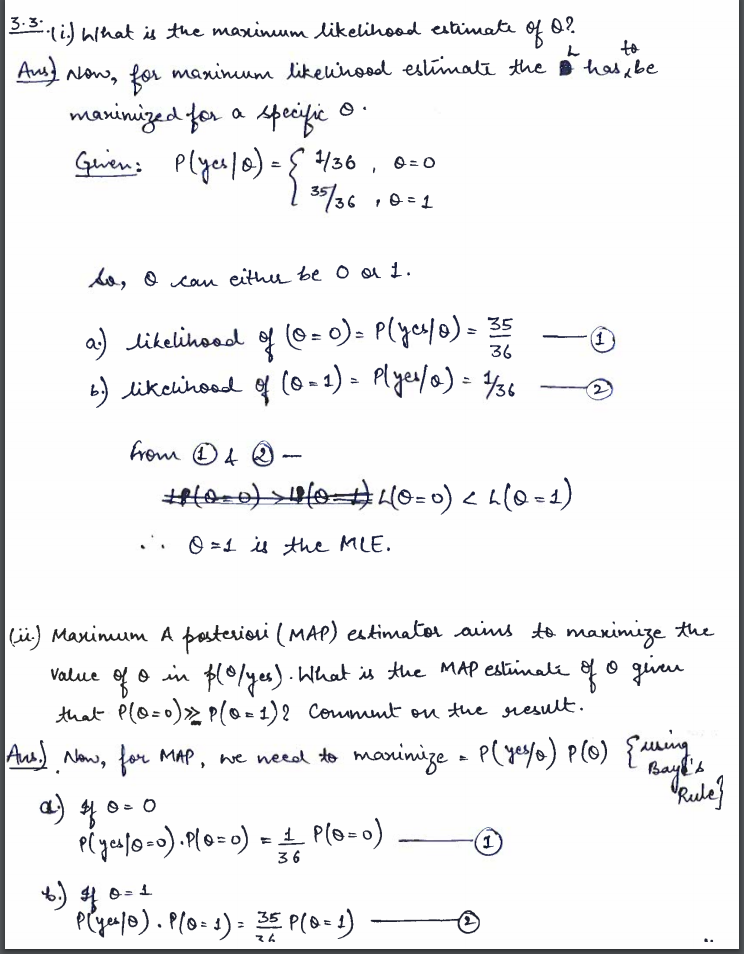 3.3. (i.) What is the maximum likelihood estimate of θ?
Ans.) Now, for maximum likelihood estimate the L has to be
maximized for a specific θ.
Given: P(yes/θ) = { 1/36 , θ=0
35/36 , θ=1
So, θ can either be 0 or 1.
a.) likelihood of (θ=0) = P(yes/θ) = 35/36 — ①
b.) likelihood of (θ=1) = P(yes/θ) = 1/36 — ②
From ① & ② —
L(θ=0) < L(θ=1)
∴ θ=1 is the MLE.
(ii.) Maximum A posteriori (MAP) estimator aims to maximize the
value of θ in p(θ/yes). What is the MAP estimate of θ given
that P(θ=0) ≫ P(θ=1)? Comment on the result.
Ans.) Now, for MAP, we need to maximize = P(yes/θ) P(θ) {using
Baye's
Rule}
a.) If θ=0
P(yes/θ=0).P(θ=0) = 1/36 P(θ=0) — ①
b.) If θ=1
P(yes/θ).P(θ=1) = 35/36 P(θ=1) — ②